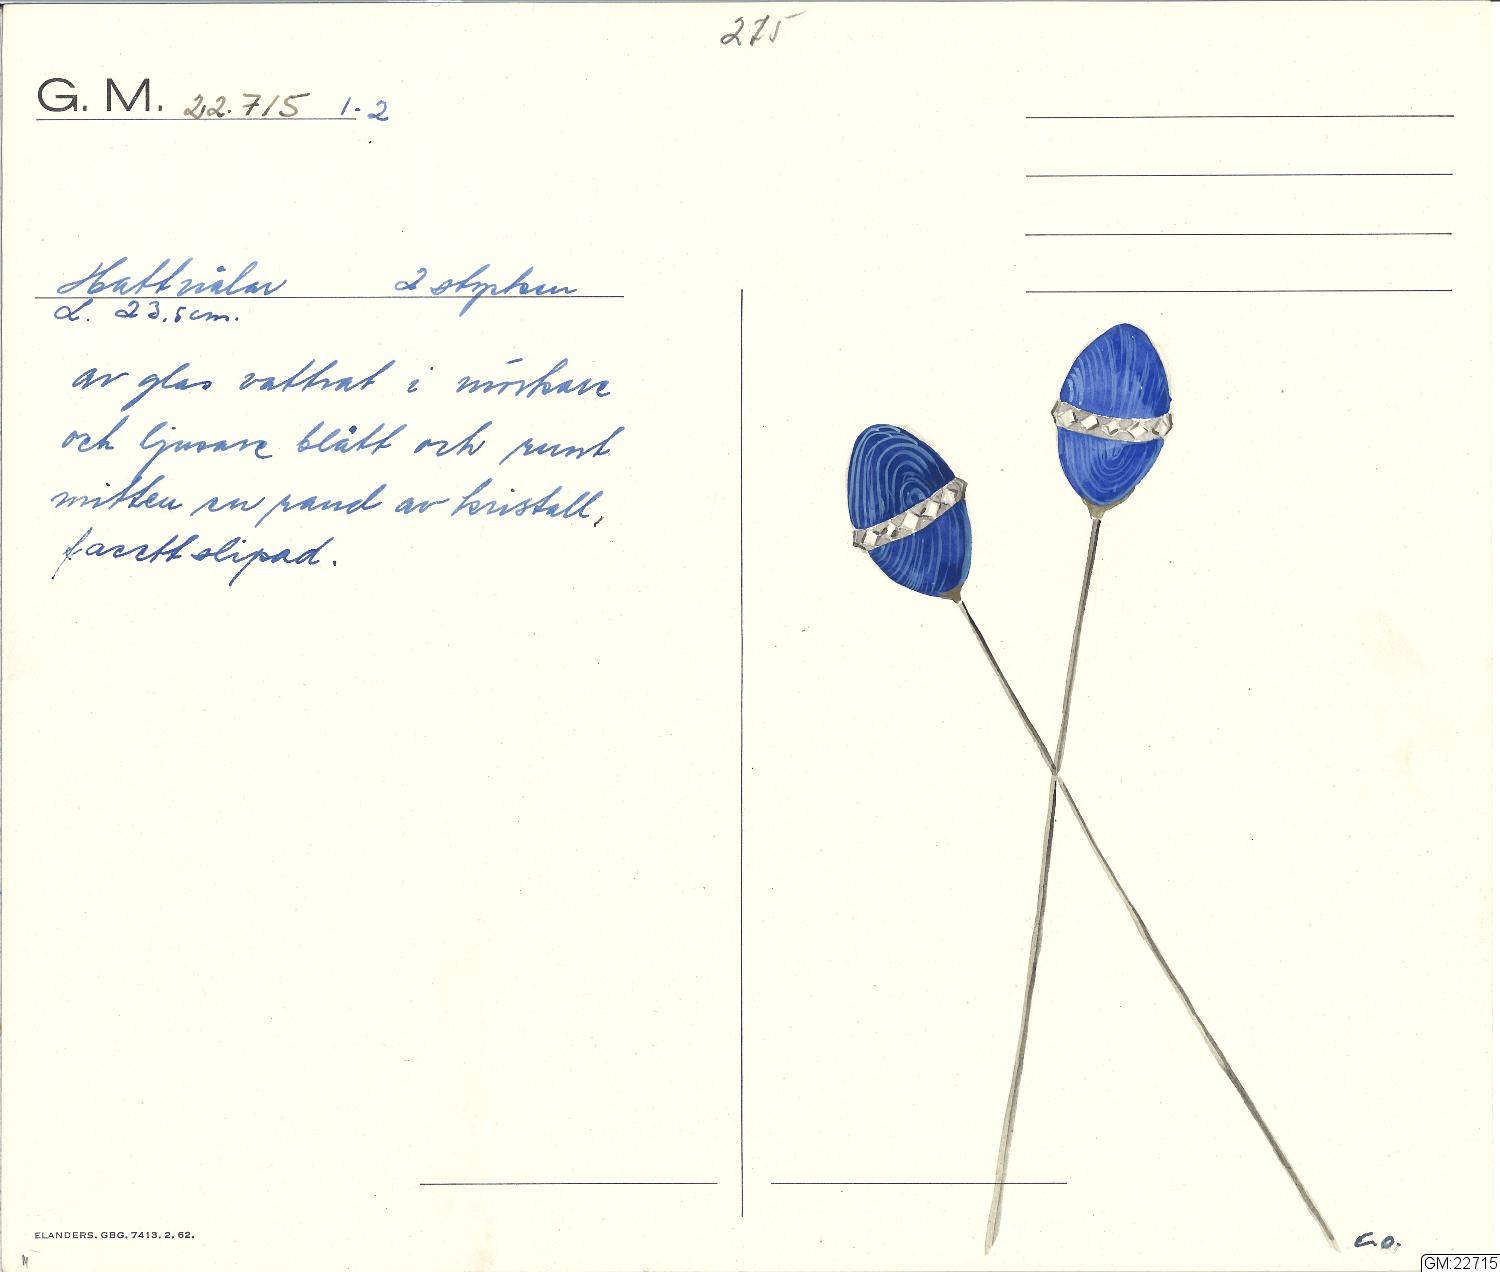 275
G. M. 22.715 1-2
Hattnålar 2 stycken
L. 23,5 cm.
av glas vattrat i mörkare
och ljusare blått och runt
mitten en rand av kristall,
facettslipad.
ELANDERS. GBG. 7413. 2. 62.
G.O.
GM:22715